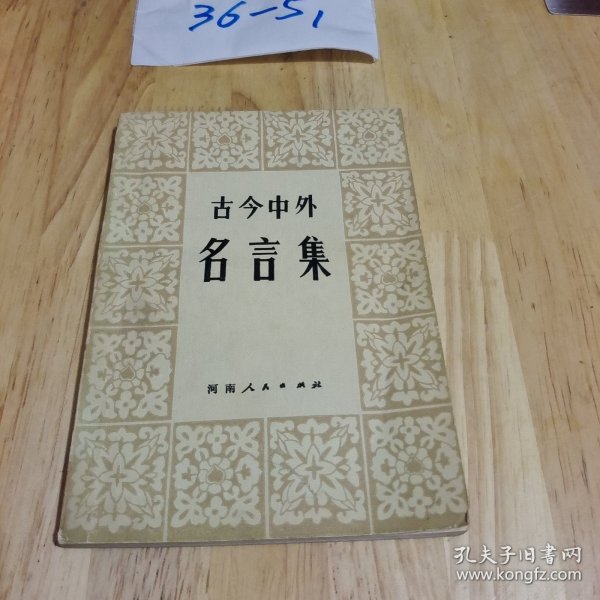 36-51
古今中外
名言集
河南人民出版社
孔夫子旧书网
www.kongfz.com